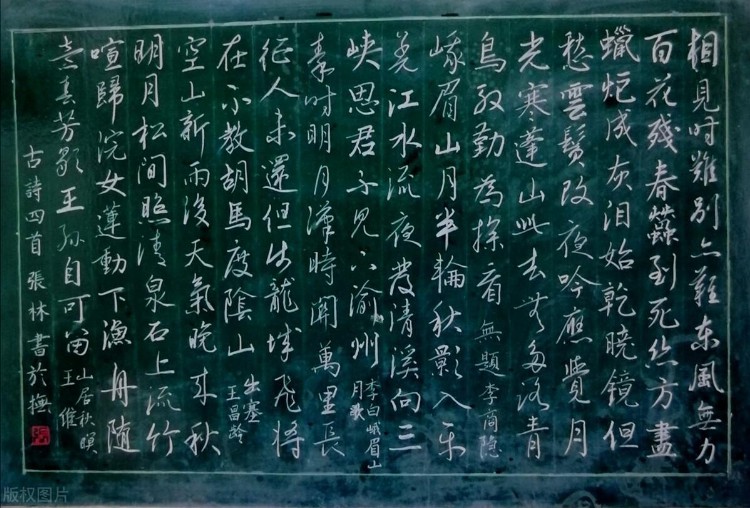 相見时難别亦難东風無力
百花殘春蠶到死丝方盡
蠟炬成灰泪始乾曉鏡但
愁雲鬓改夜吟應覺月
光寒蓬山此去无多路青
鳥殷勤為探看 無題李商隐
峨眉山月半輪秋影入平
羌江水流夜發清溪向三
峡思君不見下渝州 李白峨眉山
月歌
秦时明月漢時関萬里長
征人未還但使龍城飛将
在不教胡馬度陰山 出塞
王昌龄
空山新雨後天氣晚来秋
明月松间照清泉石上流竹
喧歸浣女蓮動下漁舟随
意春芳歇王孙自可留 山居秋暝
王维
古詩四首張林書於撫
版权图片